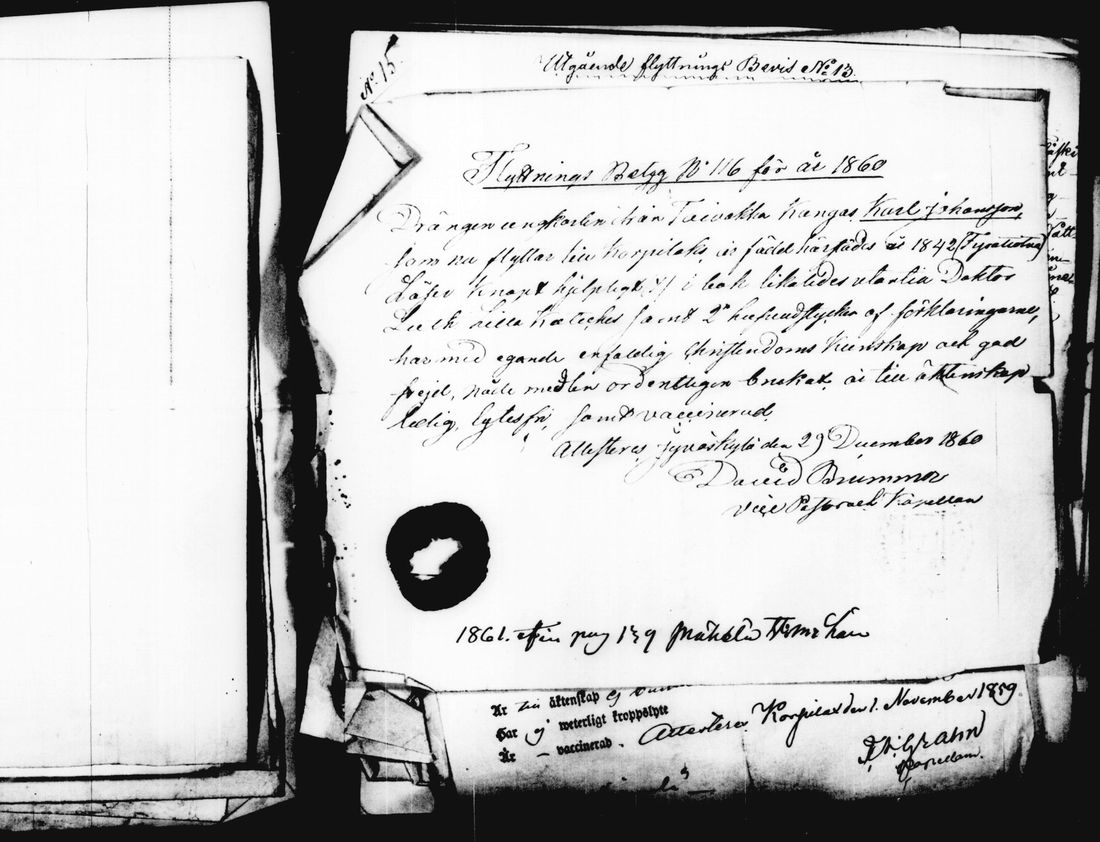 Utgående flyttnings Bevis No 13.
No 15
Flyttnings Betyg No 116 för år 1860
Drängen ungkarlen från Toivakka Kangas Karl Johansson,
som nu flyttar till Korpilaks är född härstädes år 1842
Läser knapt hjelpligt i bok likaledes utantill Doktor
Luth lilla Kateches samt 2ne hufvudstycken af förklaringarne,
har med egande enfaldig Christendoms Kunskap och god
frejd, nåde medlen ordentligen brukat är till äktenskap
ledig, lytesfri, samt vaccinerad
Attesteras Jyväskylä den 29 December 1860
David Brummer
vice Pastor och Kapellan
1861. pag 139 Mäkelä
Är till äktenskap ej
Har ej weterligt kroppslyte
Är — vaccinerad.
Attesterar Korpilax den 1. November 1859.
Grahn
Kapellan.